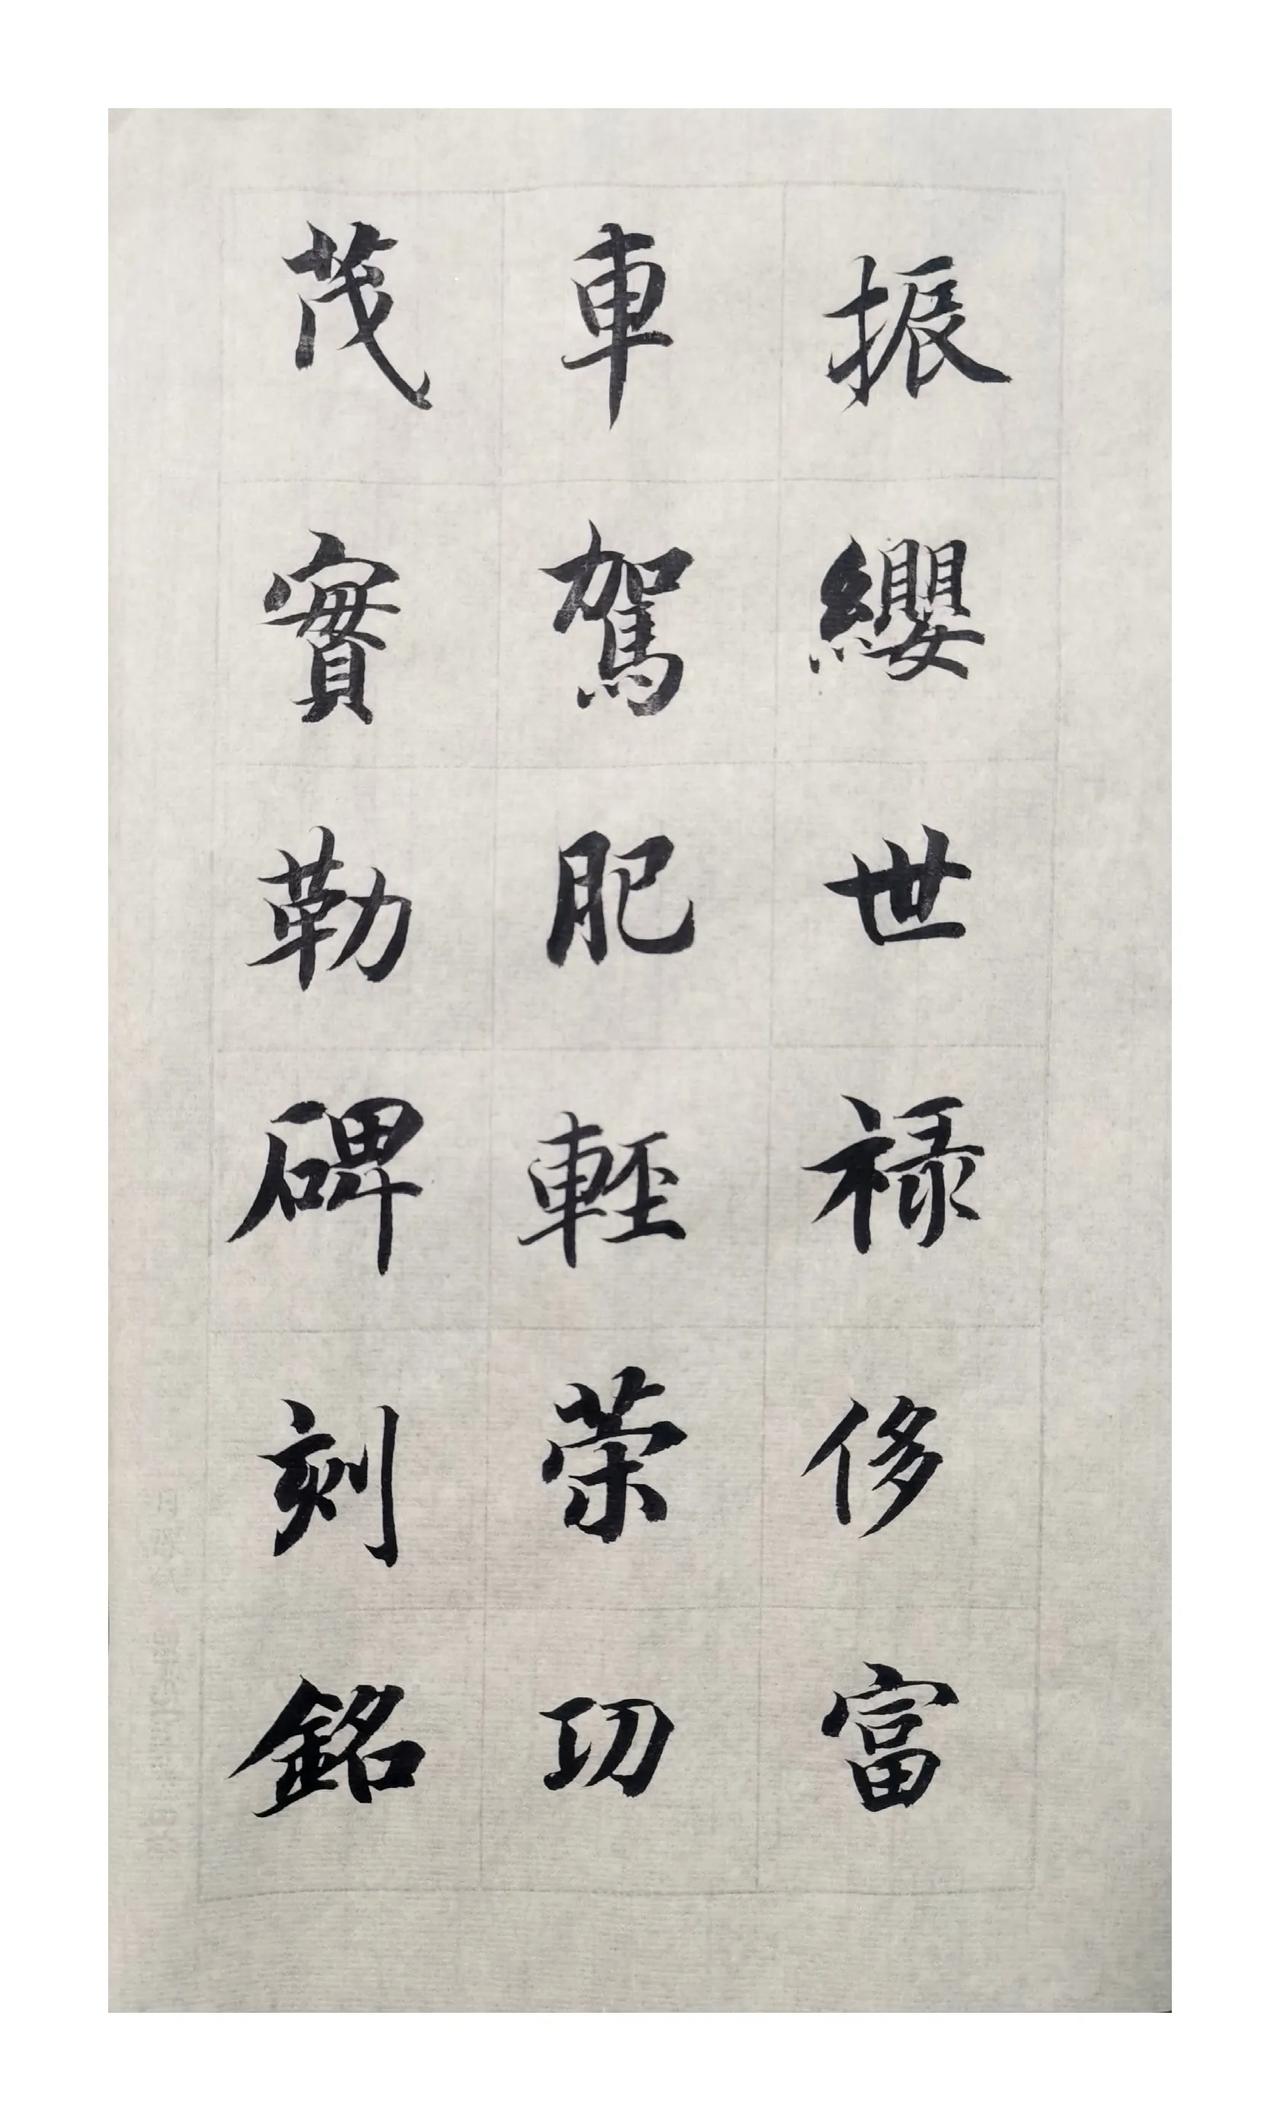 振纓世禄侈富
車駕肥輕荣功
茂實勒碑刻銘